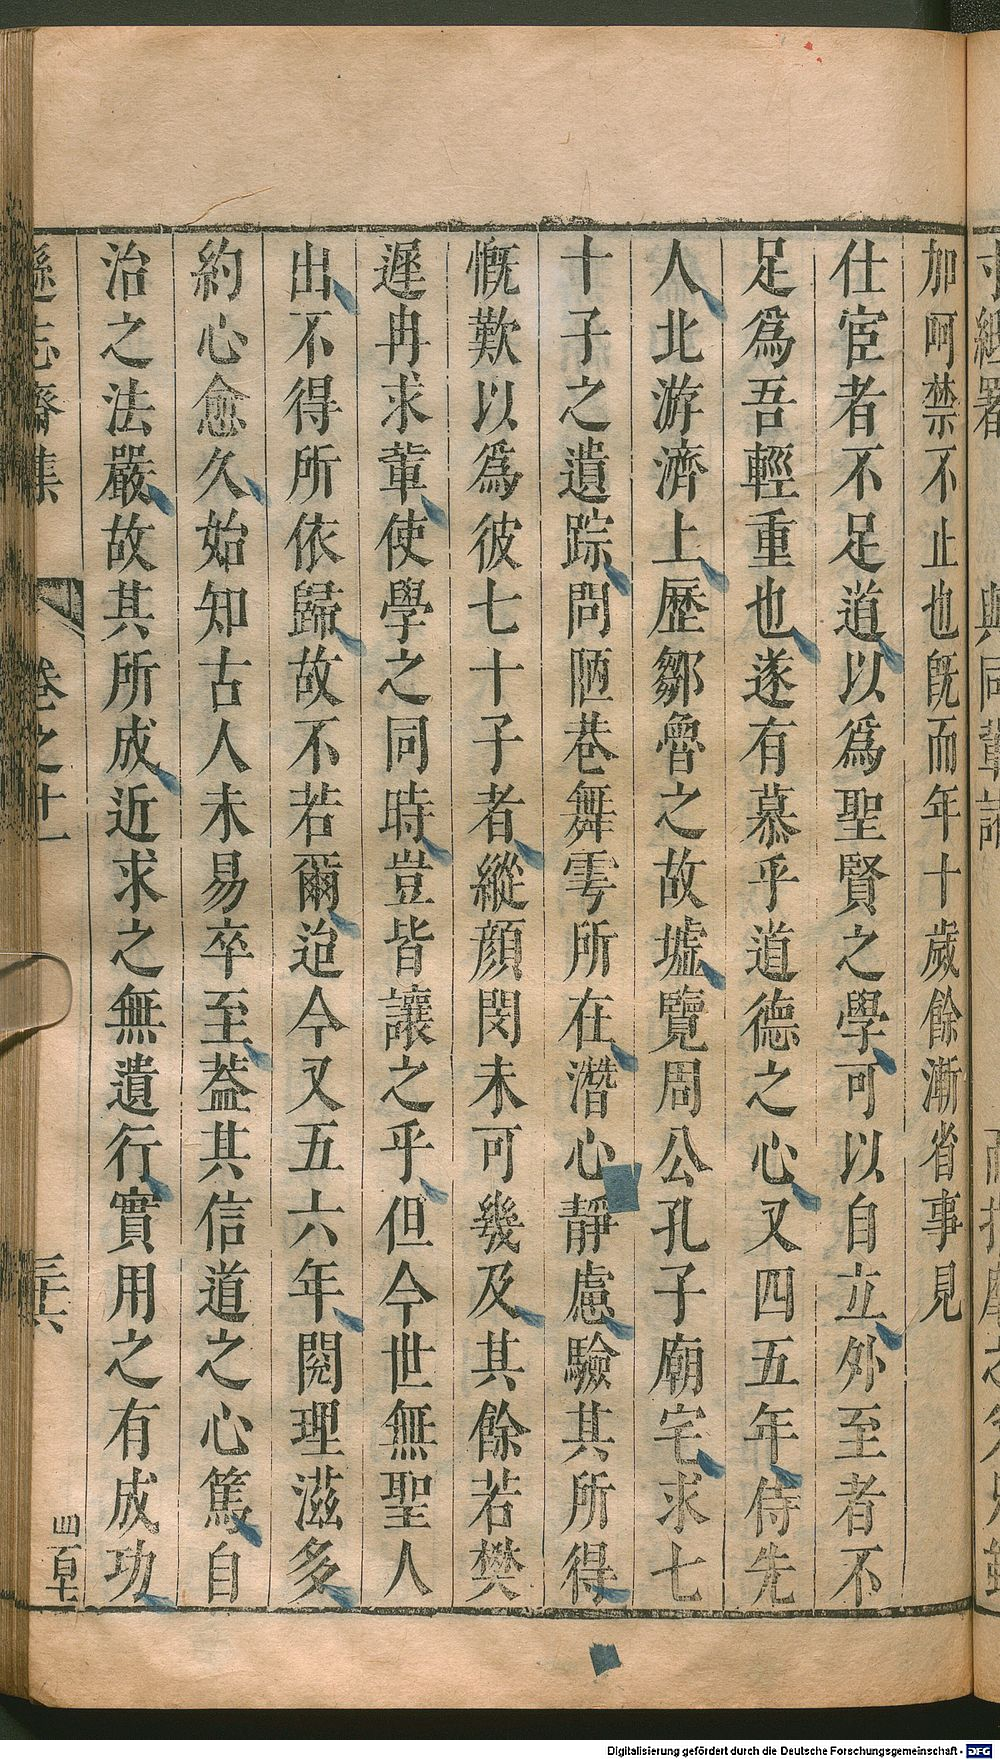 加呵禁不止也旣而年十歲餘漸省事見
仕宦者不足道以爲聖賢之學可以自立外至者不
足爲吾輕重也遂有慕乎道德之心又四五年侍先
人北游濟上歷鄒魯之故墟覽周公孔子廟宅求七
十子之遺踪問陋巷舞雩所在潛心靜慮驗其所得
慨歎以爲彼七十子者縱顏閔未可幾及其餘若樊
遲冉求輩使學之同時豈皆讓之乎但今世無聖人
出不得所依歸故不若爾迨今又五六年閱理滋多
約心愈久始知古人未易卒至葢其信道之心篤自
治之法嚴故其所成近求之無遺行實用之有成功
遜志齋集 卷之十一
Digitalisierung gefördert durch die Deutsche Forschungsgemeinschaft - DFG